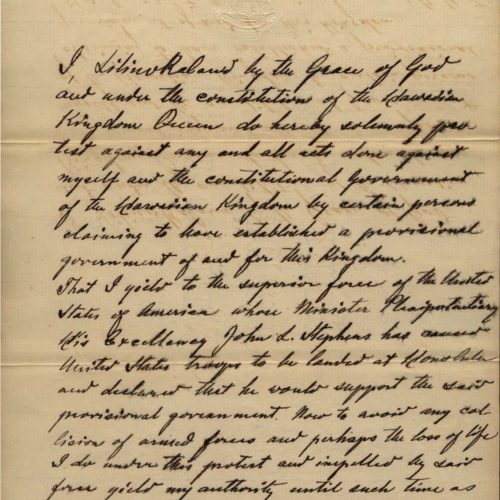 I, Liliuokalani by the Grace of God
and under the constitution of the Hawaiian
Kingdom Queen do hereby solemnly pro
test against any and all acts done against
myself and the constitutional Government
of the Hawaiian Kingdom by certain persons
claiming to have established a provisional
government of and for this Kingdom.
That I yield to the superior force of the United
States of America whose Minister Plenipotentiary
His Excellency John L. Stephens has caused
United States troops to be landed at Honolulu
and declared that he would support the said
provisional government. Now to avoid any col
lision of armed forces and perhaps the loss of life
I do under this protest and impelled by said
force yield my authority until such time as